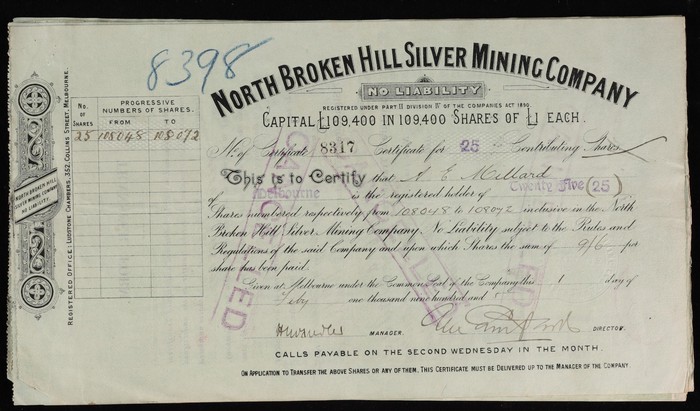 8398
NORTH BROKEN HILL SILVER MINING COMPANY
NO LIABILITY
REGISTERED UNDER PART II DIVISION IV OF THE COMPANIES ACT 1890.
CAPITAL £109,400 IN 109,400 SHARES OF £1 EACH.
No. of Certificate 8317 Certificate for 25 Contributing Shares
This is to Certify that A E Millard
of Melbourne is the registered holder of Twenty Five (25)
Shares numbered respectively from 108048 to 108072 inclusive in the North
Broken Hill Silver Mining Company. No Liability subject to the Rules and
Regulations of the said Company and upon which Shares the sum of 9/6 per
share has been paid.
Given at Melbourne under the Common Seal of the Company this 1 day of
Feby one thousand nine hundred and
MANAGER. DIRECTOR.
CALLS PAYABLE ON THE SECOND WEDNESDAY IN THE MONTH.
ON APPLICATION TO TRANSFER THE ABOVE SHARES OR ANY OF THEM. THIS CERTIFICATE MUST BE DELIVERED UP TO THE MANAGER OF THE COMPANY.
CANCELLED
NO. OF SHARES
PROGRESSIVE NUMBERS OF SHARES.
FROM TO
25 108048 108072
NORTH BROKEN HILL
SILVER MINING COMPANY
NO LIABILITY.
REGISTERED OFFICE: LUDSTONE CHAMBERS, 352, COLLINS STREET, MELBOURNE.